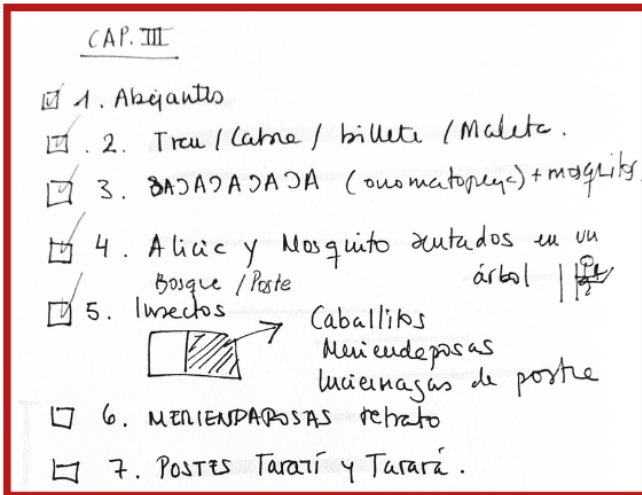 CAP. III
1. Abejantes
2. Tren / Cabra / billete / Maleta.
3. BAJAJAJAJA (onomatopeya) + mosquitos.
4. Alicia y Mosquito sentados en un
árbol
Bosque / Poste
5. Insectos
Caballitos
Meriendaposas
luciernagas de postre
6. MERIENDAPOSAS retrato
7. POSTES Tararí y Tarará.